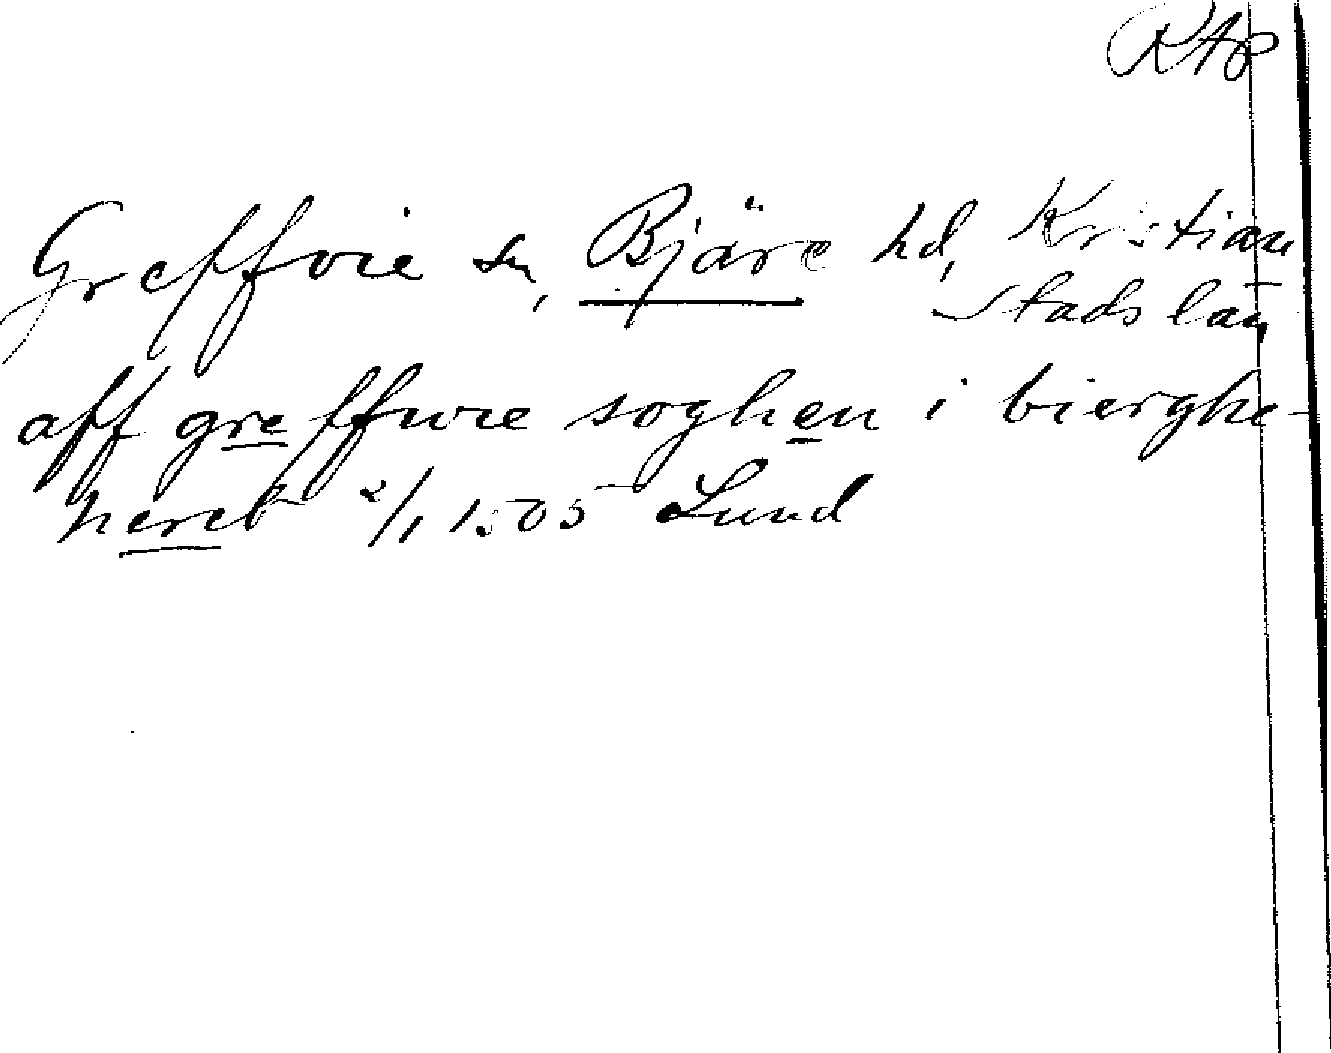 RAp
Greffvie sn, Bjäre hd, Kristian
stads län
aff greffwie soghen i bierghe-
heret 2/1 1505 Lund